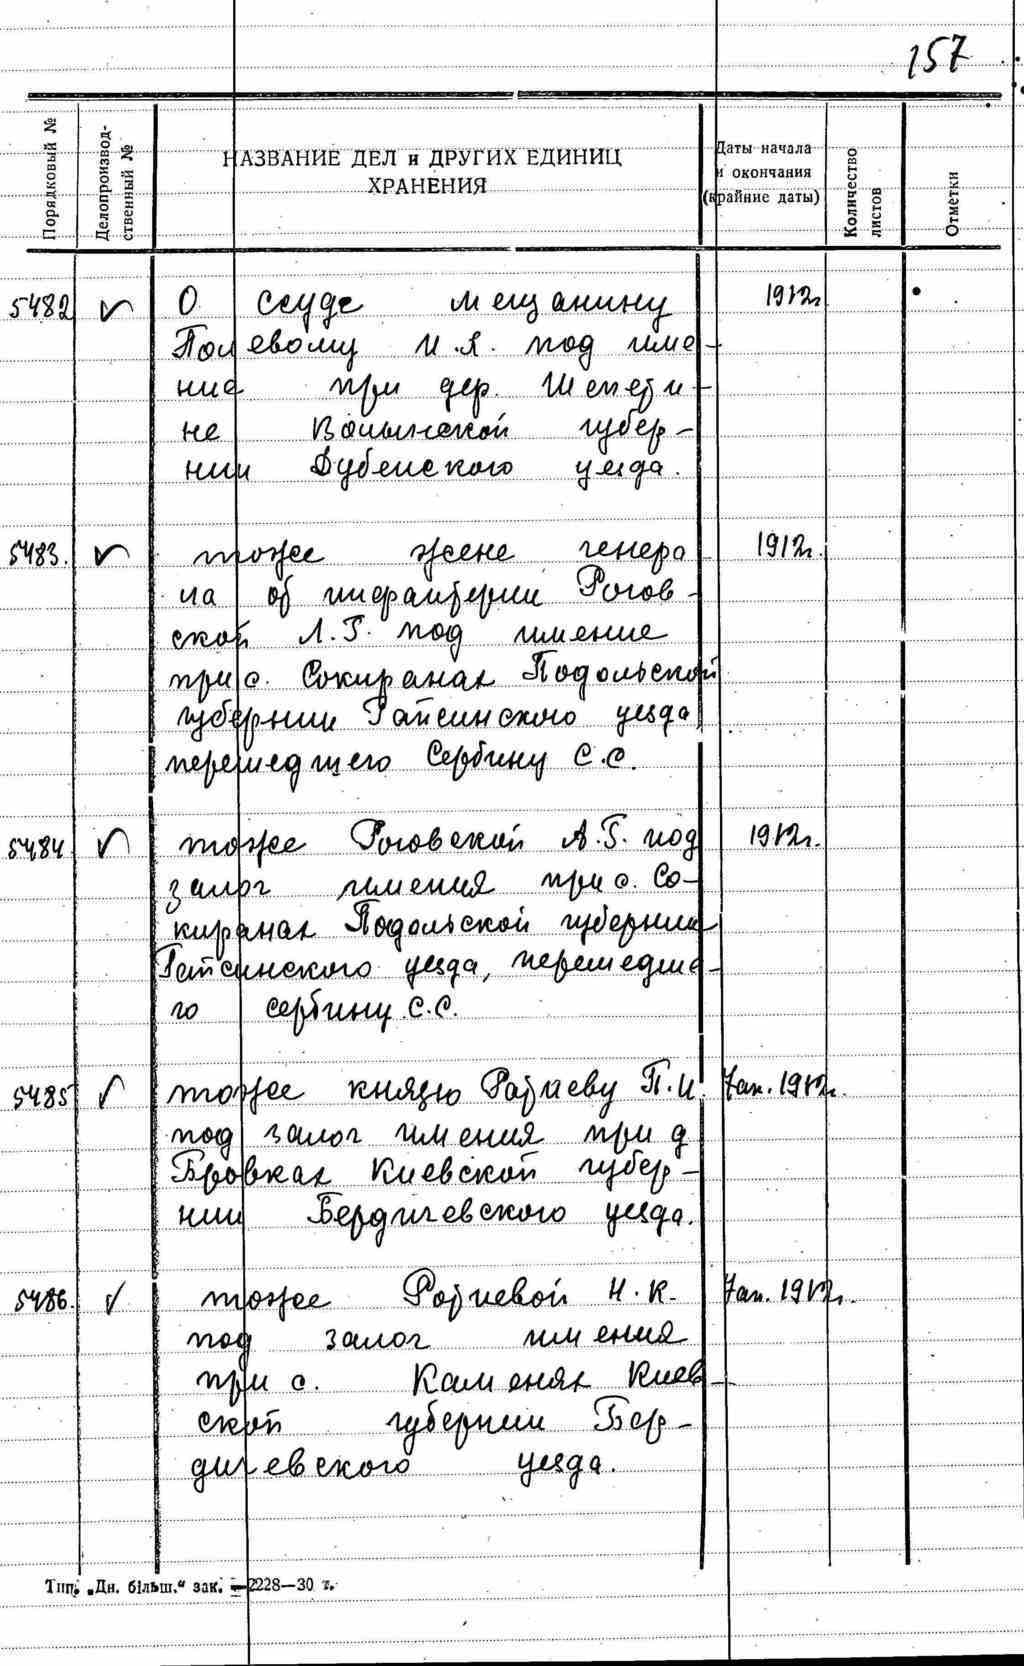 157
Порядковый №
Делопроизвод-
ственный №
НАЗВАНИЕ ДЕЛ и ДРУГИХ ЕДИНИЦ
ХРАНЕНИЯ
Даты начала
и окончания
(крайние даты)
Количество
листов
Отметки
5482 О ссуде мещанину 1912г.
Полевому И.Я. под име-
ние при дер. Шепети-
не Волынской губер-
нии Дубенского уезда.
5483. тоже жене генера 1912г.
ла от инфантерии Рогов-
ской Л.Г. под имение
при с. Сокиранах Подольской
губернии Гайсинского уезда
перешедшего Сербину С.С.
5484 тоже Роговской А.Г. под 1912г.
залог имения при с. Со-
киранах Подольской губернии
Гайсинского уезда, перешедше-
го Сербину С.С.
5485 тоже князю Ратиеву П.И. Јан. 1912г.
под залог имения при д
Бровках Киевской губер-
нии Бердичевского уезда.
5486. тоже Ратиевой Н.К. Јан. 1912г.
под залог имения
при с. Каменях Киев-
ской губернии Бер-
дичевского уезда.
Тип. „Дн. більш." зак. 2228—30 т.